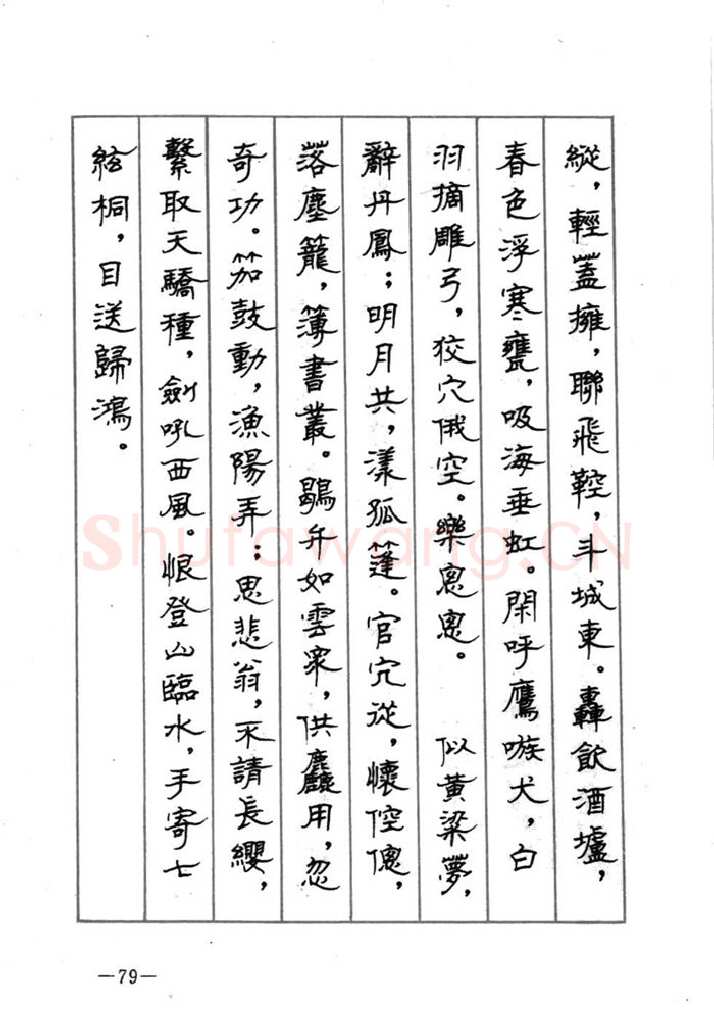 縱，輕蓋擁，聯飛鞚，斗城東。轟飲酒壚，
春色浮寒甕，吸海垂虹。閑呼鷹嗾犬，白
羽摘雕弓，狡穴俄空。樂悤悤。　似黃粱夢，
辭丹鳳；明月共，漾孤篷。官冗從，懷倥傯，
落塵籠，簿書叢。鶡弁如雲衆，供麤用，忽
奇功。笳鼓動，漁陽弄；思悲翁，不請長纓，
繫取天驕種，劍吼西風。恨登山臨水，手寄七
絃桐，目送歸鴻。
—79—
Shufawang.CN